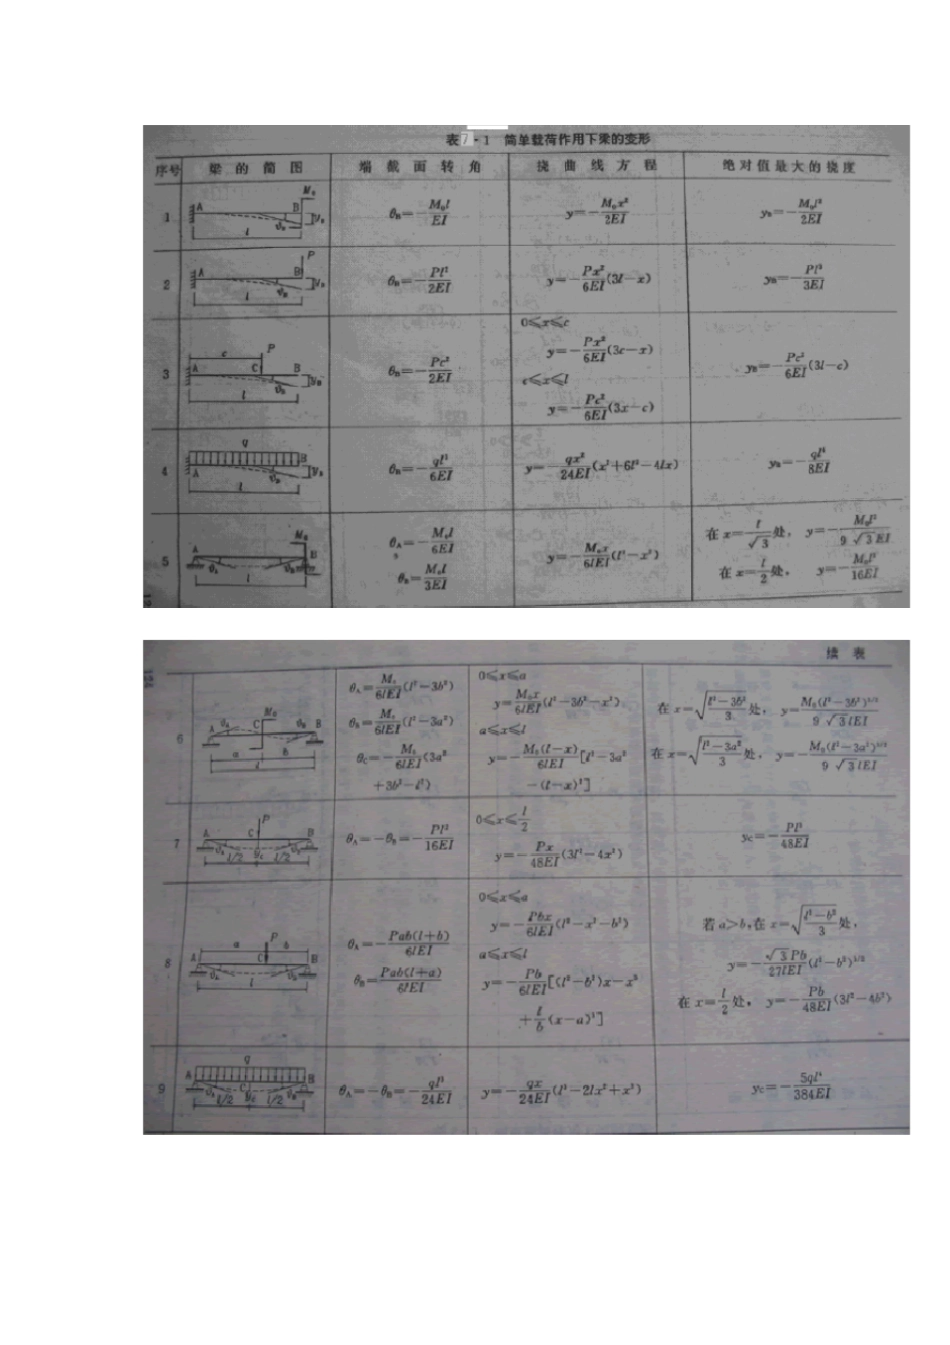 表7-1 简单载荷作用下梁的变形
序号 梁的简图 端截面转角 挠曲线方程 绝对值最大的挠度
1 A B M₀ l θ_B y_B θ_B=-M₀l/EI y=-M₀x²/2EI y_B=-M₀l²/2EI
2 A B P l θ_B y_B θ_B=-Pl²/2EI y=-Px²/6EI(3l-x) y_B=-Pl³/3EI
3 A C B P c l θ_B y_B θ_B=-Pc²/2EI
0≤x≤c
y=-Px²/6EI(3c-x)
c≤x≤l
y=-Pc²/6EI(3x-c)
y_B=-Pc²/6EI(3l-c)
4 q A B l θ_B y_B θ_B=-ql³/6EI y=-qx²/24EI(x²+6l²-4lx) y_B=-ql⁴/8EI
5 A B M₀ θ_A θ_B l
θ_A=-M₀l/6EI
θ_B=M₀l/3EI
y=-M₀x/6lEI(l²-x²)
在x=l/√3处，y=-M₀l²/9√3EI
在x=l/2处，y=-M₀l²/16EI
续表
6 A C B M₀ θ_A θ_B a b l
θ_A=M₀/6lEI(l²-3b²)
θ_B=M₀/6lEI(l²-3a²)
θ_C=-M₀/6lEI(3a²
+3b²-l²)
0≤x≤a
y=M₀x/6lEI(l²-3b²-x²)
a≤x≤l
y=-M₀(l-x)/6lEI[l²-3a²
-(l-x)²]
在x=√((l²-3b²)/3)处，y=M₀(l²-3b²)^3/2/9√3lEI
在x=√((l²-3a²)/3)处，y=-M₀(l²-3a²)^3/2/9√3lEI
7 A C B P θ_A y_C θ_B l/2 l/2
θ_A=-θ_B=-Pl²/16EI
0≤x≤l/2
y=-Px/48EI(3l²-4x²)
y_C=-Pl³/48EI
8 A C B P a b θ_A θ_B l
θ_A=-Pab(l+b)/6lEI
θ_B=Pab(l+a)/6lEI
0≤x≤a
y=-Pbx/6lEI(l²-x²-b²)
a≤x≤l
y=-Pb/6lEI[(l²-b²)x-x³
+l/b(x-a)³]
若a>b，在x=√((l²-b²)/3)处，
y=-√3Pb/27lEI(l²-b²)^3/2
在x=l/2处，y=-Pb/48EI(3l²-4b²)
9 q A C B θ_A y_C θ_B l/2 l/2
θ_A=-θ_B=-ql³/24EI
y=-qx/24EI(l³-2lx²+x³)
y_C=-5ql⁴/384EI